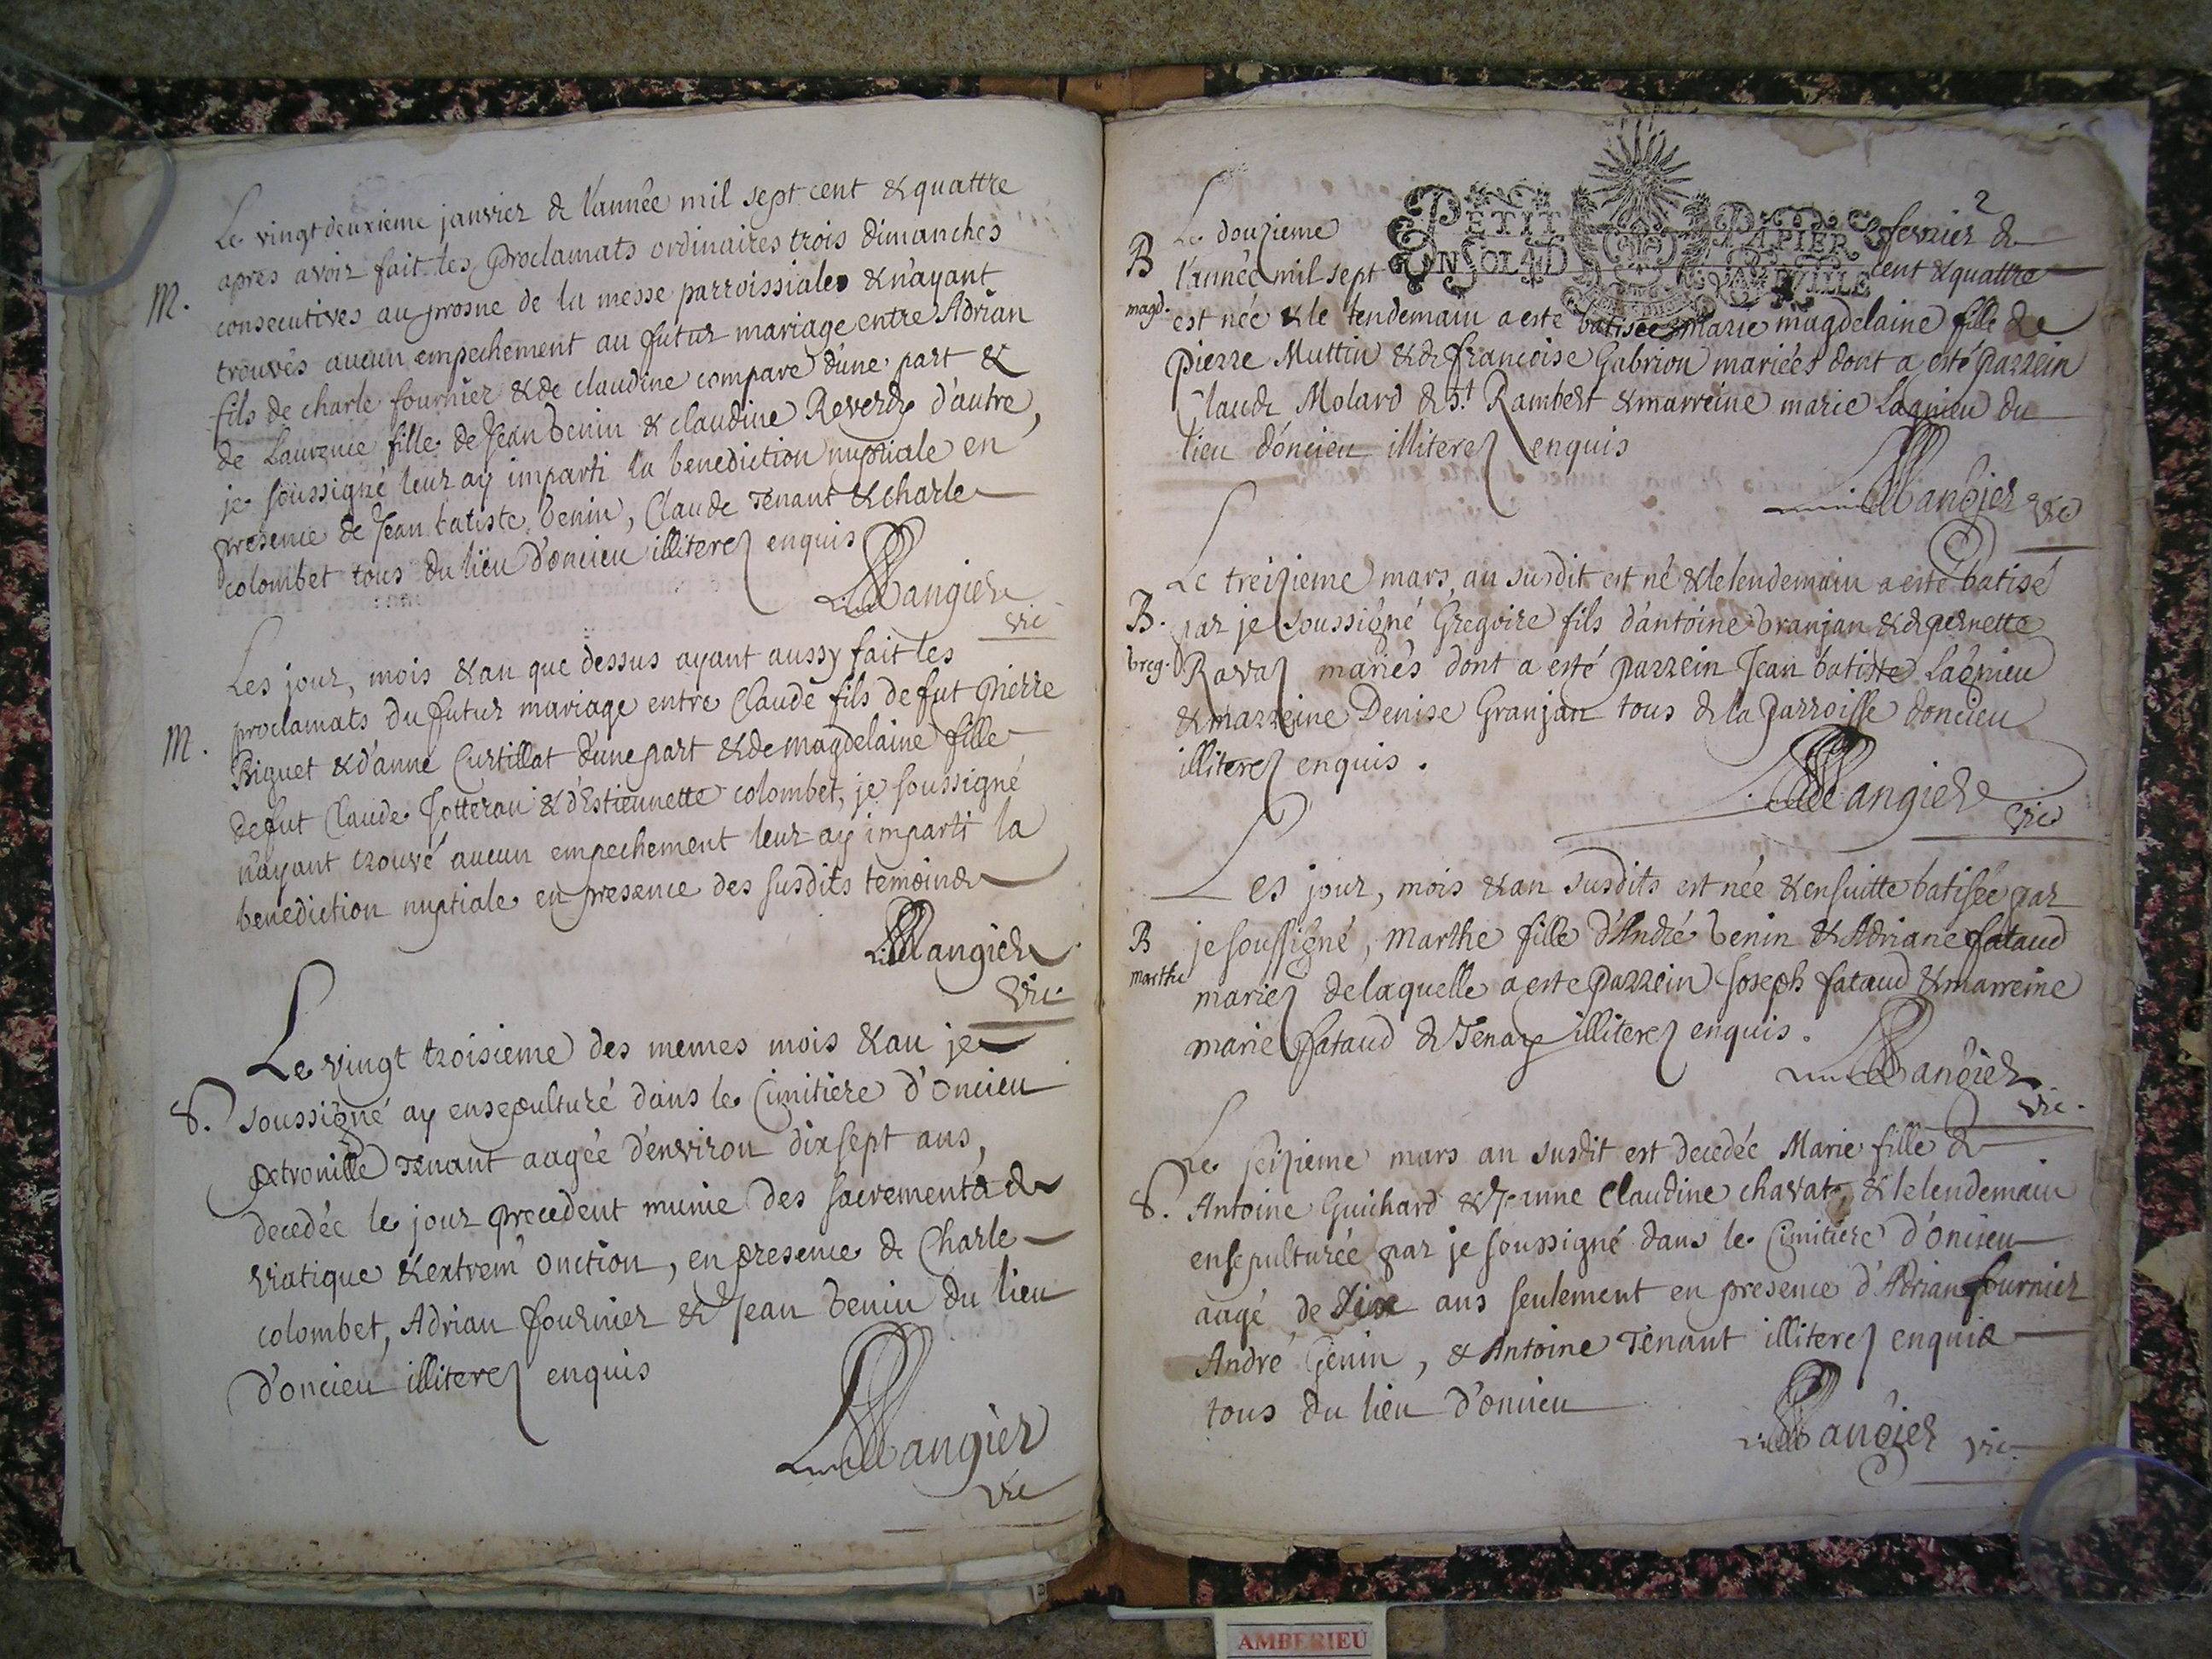 Le vingtdeuxieme janvier de l'année mil sept cent & quattre
apres avoir fait les proclamats ordinaires trois dimanches
M. consecutives au prosne de la messe parroissiale & n'ayant
trouvés aucun empechement au futur mariage entre Adrian
fils de charle fournier & de claudine compare d'une part &
de Laurence fille de Jean Genin & claudine Reverdy d'autre,
je soussigné leur ay imparti la benediction nuptiale en
presence de Jean batiste Genin, Claude Tenant & charle
colombet tous du lieu d'oncieu illiterez enquis
Mangier
vic
Les jour, mois & an que dessus ayant aussy fait les
proclamats du futur mariage entre Claude fils de fut pierre
M. Biguet & d'anne Curtillat d'une part & de magdelaine fille
de fut Claude Jotteran & d'Estiennette colombet, je soussigné
n'ayant trouvé aucun empechement leur ay imparti la
benediction nuptiale en presence des susdits temoins
Mangier
vic.
Le vingt troisieme des memes mois & an je
S. soussigné ay ensepulturé dans le Cimitiere d'Oncieu
petronille Tenant aagée d'environ dix sept ans,
decedée le jour precedent munie des sacrements de
viatique & extrem' onction, en presence de Charle
colombet, Adrian fournier & Jean Genin du lieu
d'oncieu illiterez enquis
Mangier
vic
2
Le douzieme fevrier de
PETIT PAPIER
B l'année mil sept cent & quattre
magd. est née & le lendemain a esté batisée marie magdelaine fille de
pierre Muttin & de francoise Gabrion mariées dont a esté parrein
Claude Molard de St. Rambert & marreine marie Lagnieu du
lieu d'oncieu illiterez enquis
Mangier vic
Le treizieme mars an susdit est né & le lendemain a esté batisé
B. par je soussigné Gregoire fils d'antoine Granjan & de pernette
Greg. Ravaz mariés dont a esté parrein Jean batiste Lagnieu
& marreine Denise Granjan tous de la parroisse d'oncieu
illiterez enquis.
Mangier
vic
Les jour, mois & an susdits est née & ensuitte batisée par
B je soussigné, Marthe fille d'André Genin & Adriane fataud
marthe mariez de laquelle a esté parrein Joseph fataud & marreine
marie fataud de Tenay illiterez enquis.
Mangier
vic.
Le seizieme mars an susdit est decedée Marie fille de
S. Antoine Guichard & Jeanne Claudine chavat, & le lendemain
ensepulturée par je soussigné dans le Cimitiere d'oncieu
aagé de dix ans seulement en presence d'Adrian fournier
André Genin, & Antoine Tenant illiterez enquis
tous du lieu d'oncieu
Mangier vic.
AMBERIEU